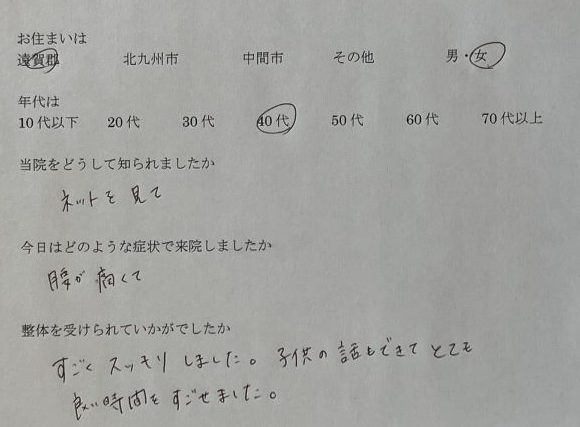 お住まいは
遠賀郡 北九州市 中間市 その他 男・女
年代は
10代以下 20代 30代 40代 50代 60代 70代以上
当院をどうして知られましたか
ネットを見て
今日はどのような症状で来院しましたか
腰が痛くて
整体を受けられていかがでしたか
すごくスッキリしました。子供の話もできてとても
良い時間をすごせました。